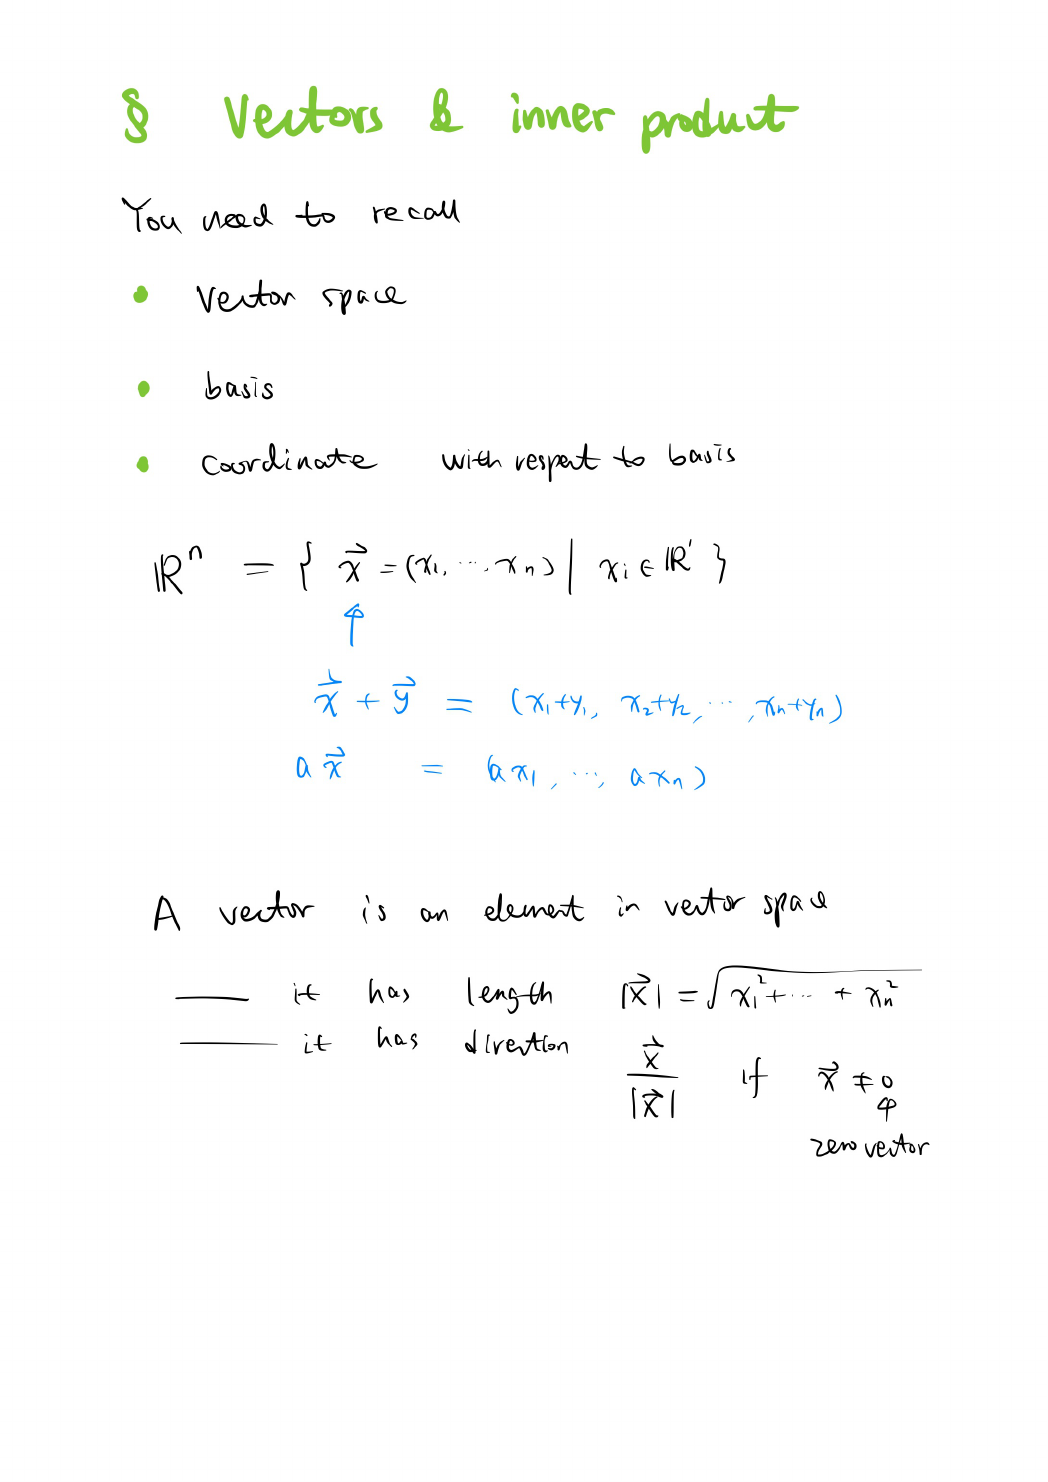 § Vectors & inner product
You need to recall
• Vector space
• basis
• coordinate with respect to basis
ℝⁿ = { x⃗ = (x₁, ⋯, xₙ) | xᵢ ∈ ℝ¹ }
↑
x⃗ + y⃗ = (x₁+y₁, x₂+y₂, ⋯, xₙ+yₙ)
a x⃗ = (ax₁, ⋯, axₙ)
A vector is an element in vector space
— it has length |x⃗| = √(x₁² + ⋯ + xₙ²)
— it has direction x⃗ / |x⃗| if x⃗ ≠ 0
↑
zero vector